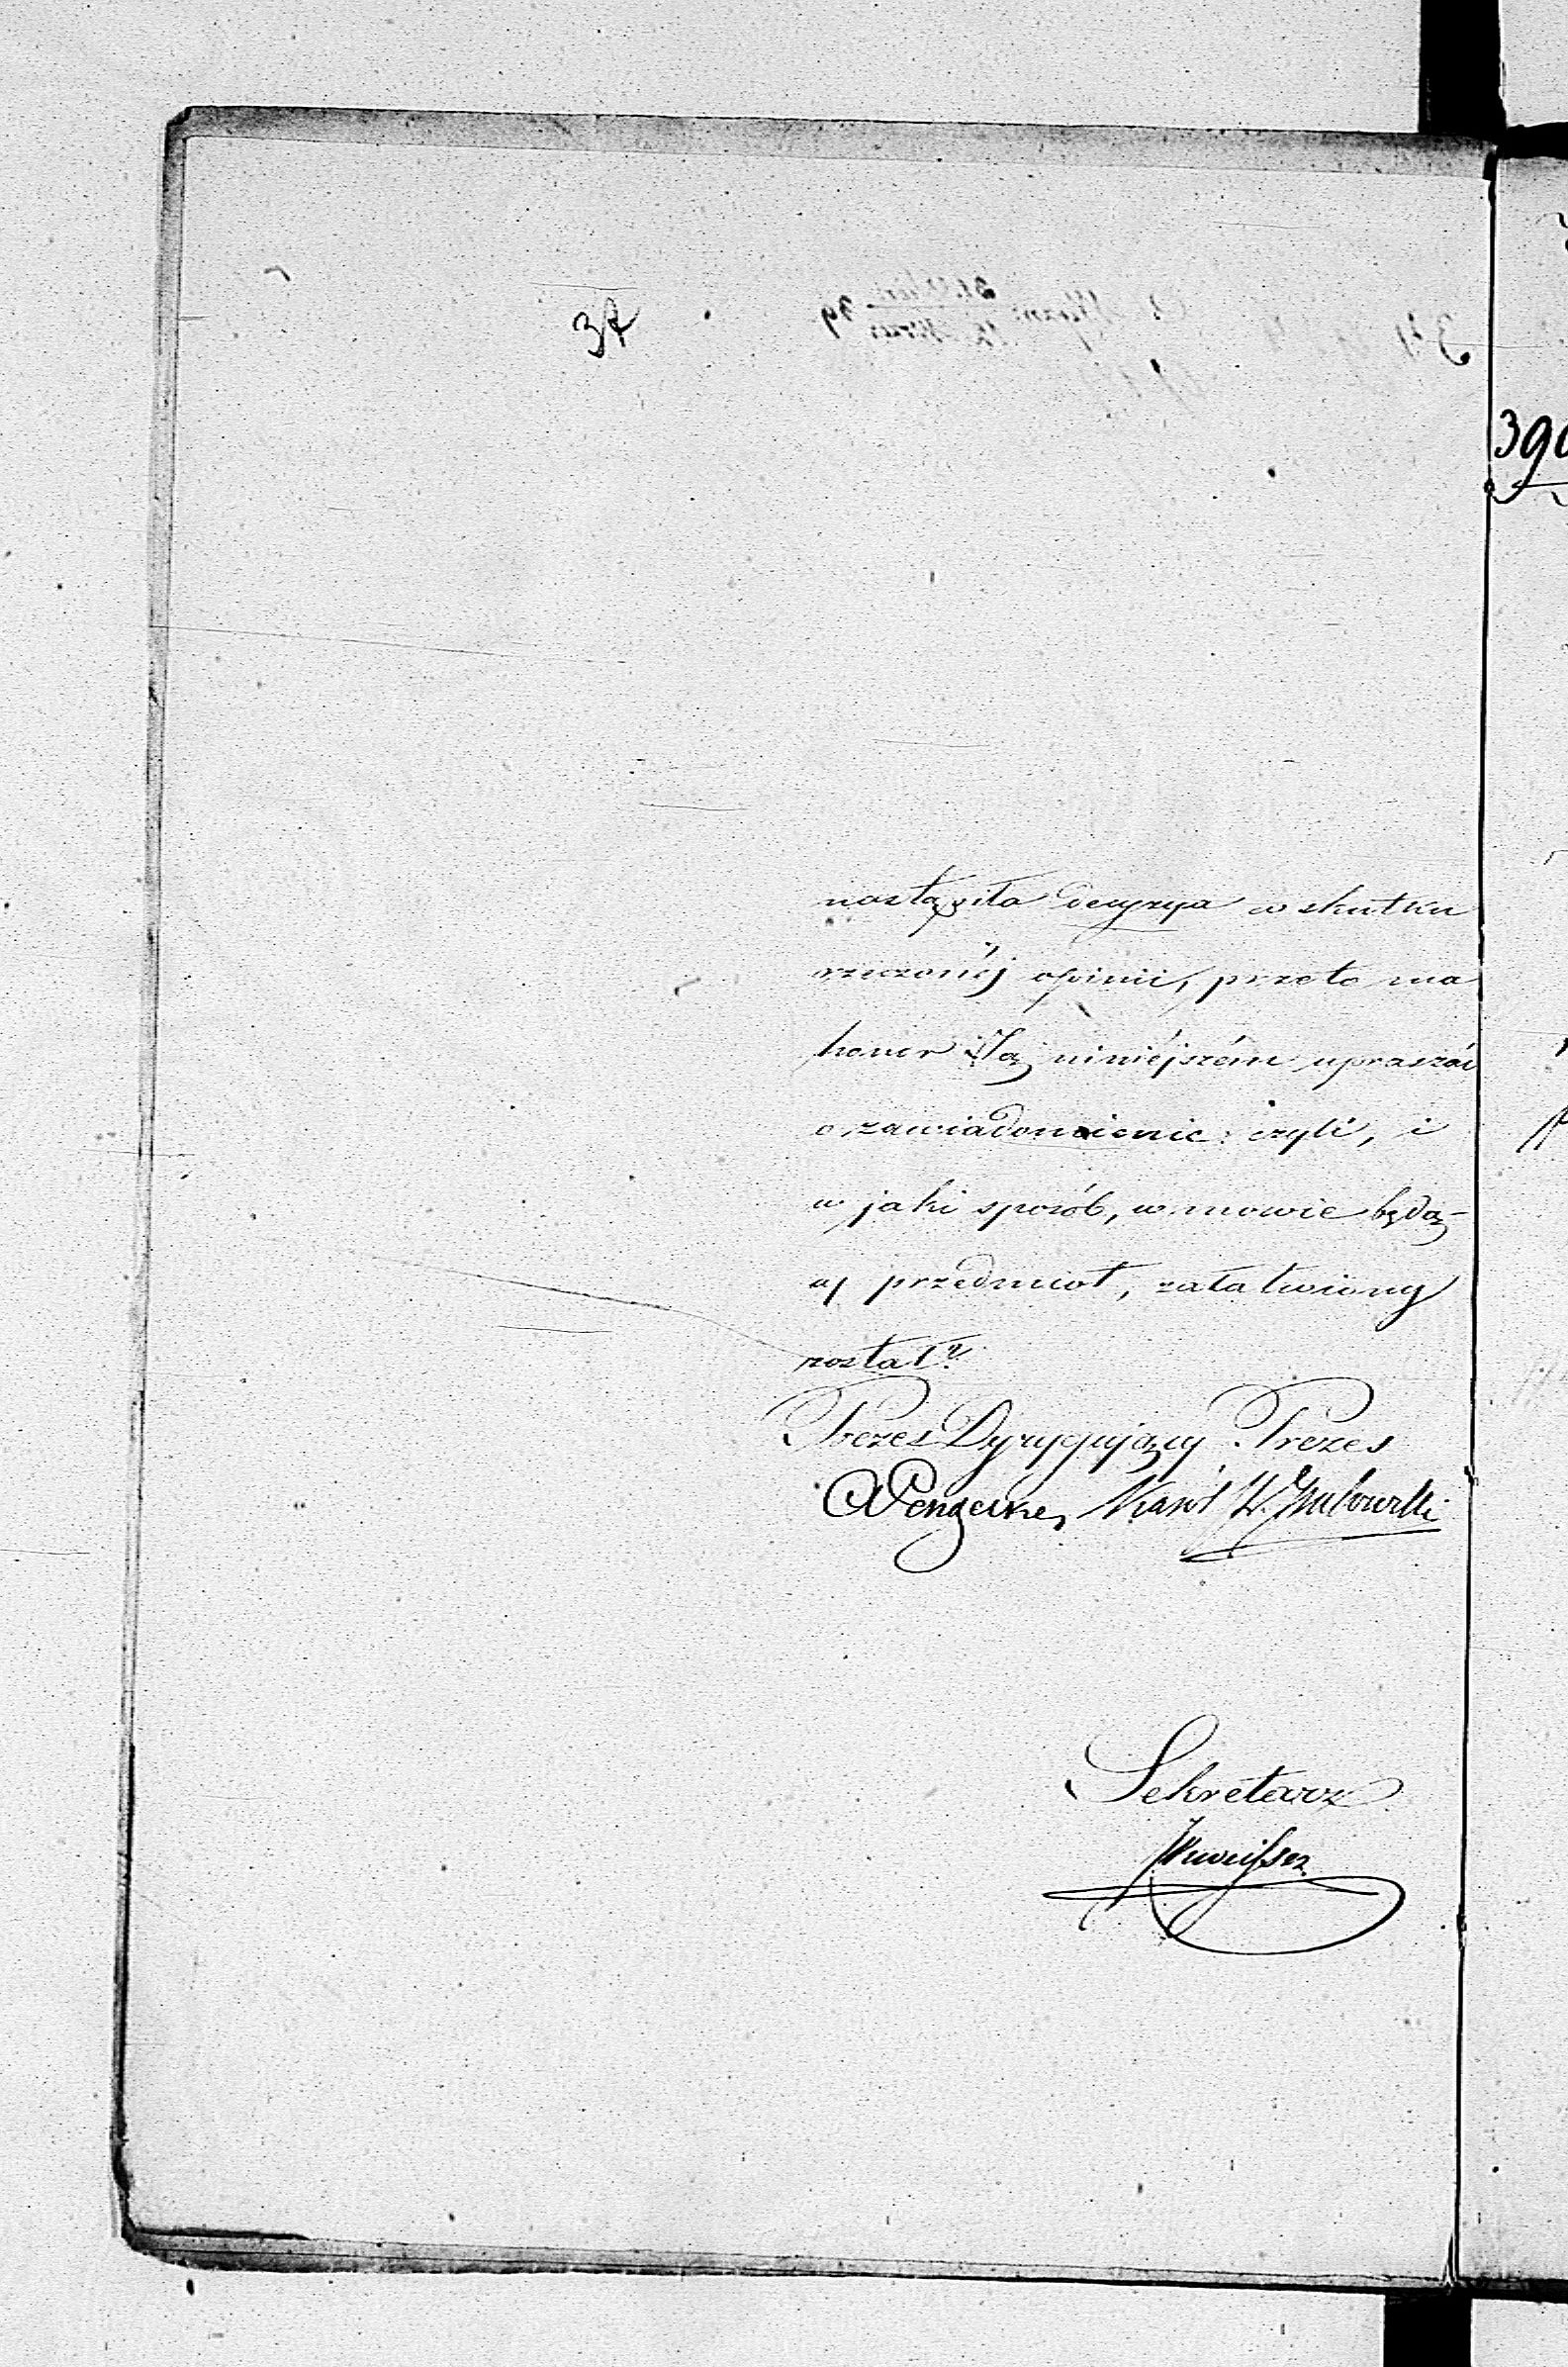 37
nastąpiła decyzya w skutku
rzeczonéj opinii, przeto ma
honor Ją niniéjszém upraszać
o zawiadomienie: czyli, i
w jaki sposób, w mowie będą-
cy przedmiot, załatwiony
został?
Prezes Dyrygujący Prezes
Karol
Sekretarz
390